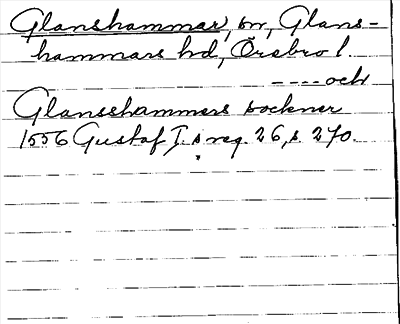 Glanshammar, sn, Glans-
hammars hd, Örebro l.
---- och
Glansshammers sockner
1556 Gustaf I:s reg. 26, s. 270.